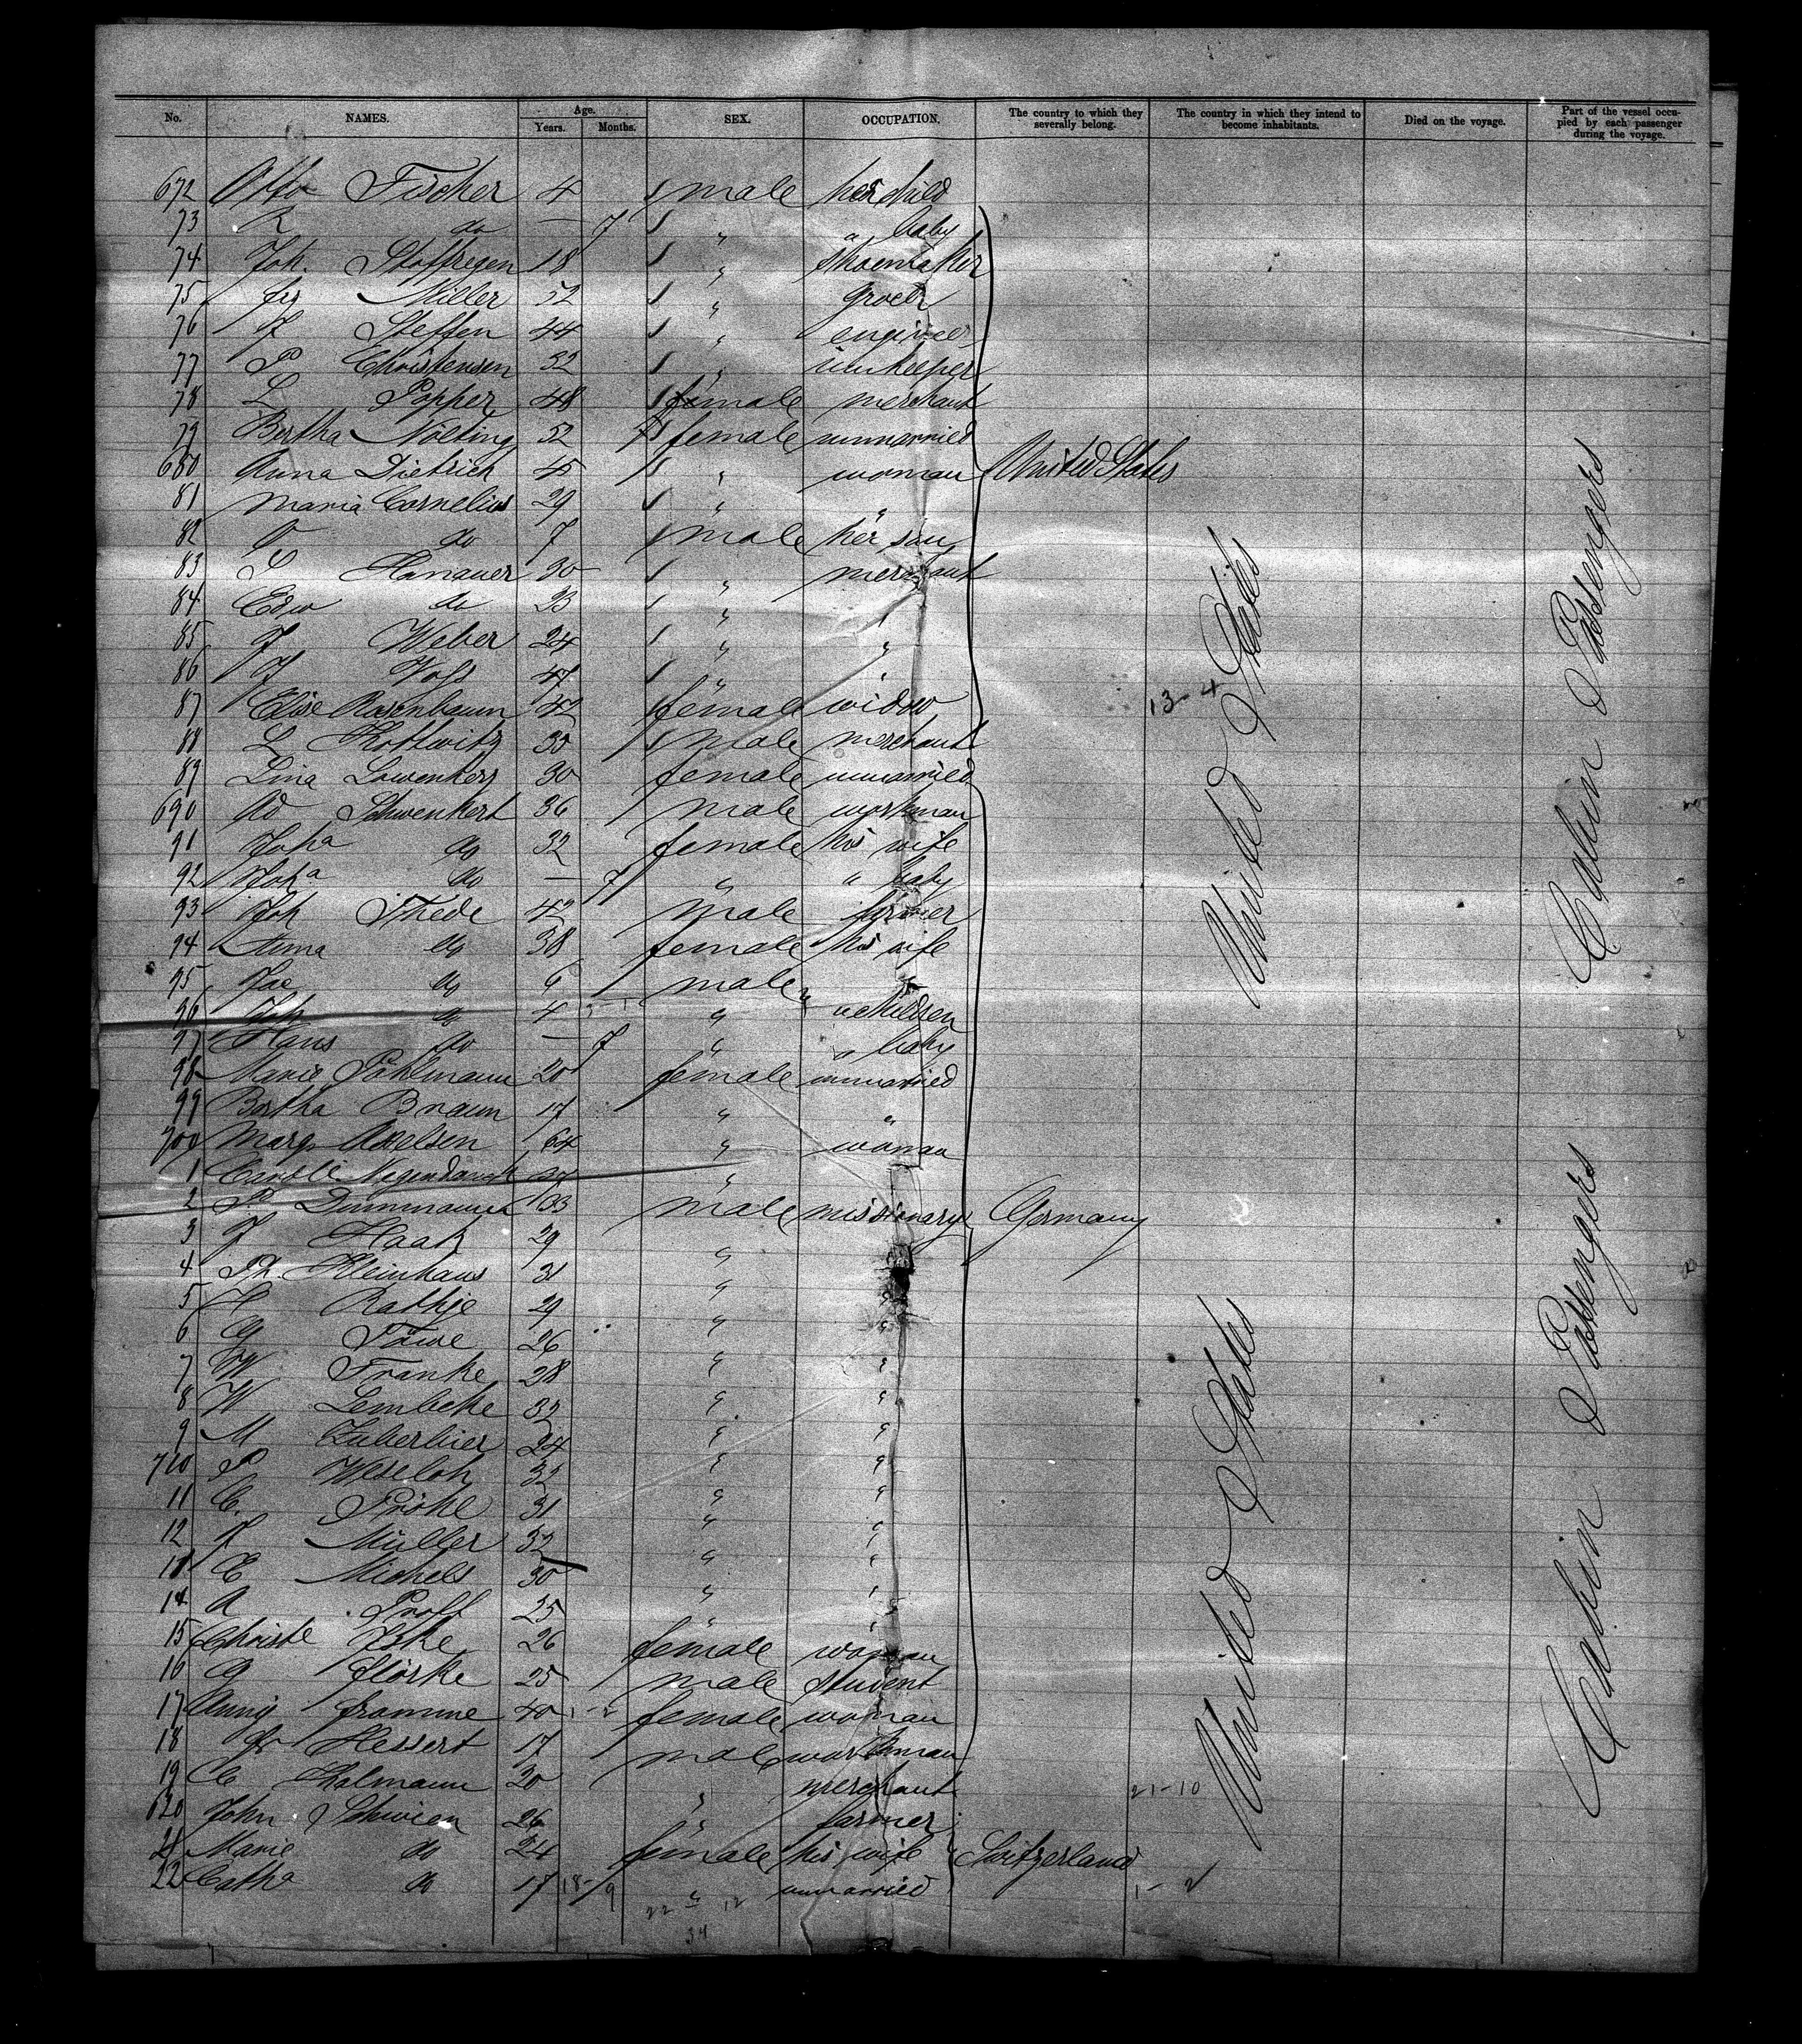 No. NAMES. Age. Years. Months. SEX. OCCUPATION. The country to which they severally belong. The country in which they intend to become inhabitants. Died on the voyage. Part of the vessel occupied by each passenger during the voyage.
672 Otto Fischer 4 male her child
73 R do — 7 " " baby
74 Joh. Stoffregen 18 " shoemaker
75 Miller 52 " grocer
76 Steffen 44 " engineer
77 P Christensen 52 " innkeeper
78 L Popper 48 male merchant
79 Bertha Nölting 52 female unmarried
680 Anna Dietrich 45 " woman United States
81 Maria Cornelius 29 " "
82 do 7 male her son
83 Hanauer 30 " merchant
84 Edw do 23 " "
85 Weber 24 " "
86 " "
87 Elise Rosenbaum 42 female widow 13-4
88 L Kottwitz male merchant
89 Lina 30 female unmarried
690 Ad Schwenkert 36 male workman
91 Joha do 32 female his wife
92 Joha do — 7 " " baby
93 Joh Thede 42 male farmer
94 Anna do 38 female his wife
95 do male "
96 Joh do 4 " " children
97 Hans do — 7 " " baby
98 Marie Pahlmann 20 female unmarried
99 Bertha Braun 17 " "
700 Marg Axelsen 64 " woman
1 "
2 P. 33 male missionary Germany
3 Haak 29 "
4 Ph. Kleinhans 31 "
5 Rathje 29 " "
6 26 " "
7 W Franke 28 " "
8 W Lembcke 32 " "
9 M Zuberbier 24 " "
710 P Weseloh 32 " "
11 C. Pröhl 31 " "
12 Müller 32 " "
13 E Michels 30 " "
14 A 25 " "
15 Christe 26 female woman
16 Störke 25 male student
17 Framme 40 female woman
18 Hessert 17 male workman
19 C 20 " merchant 21-10
620 John Schwien 26 " farmer
21 Marie do 24 female his wife Switzerland
22 Catha do 17 " unmarried 1-
22 12
34
United States
United States
Cabin Passengers
Cabin Passengers